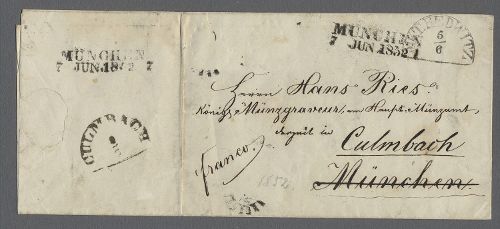 MÜNCHEN
7 JUN. 1852 7
CULMBACH
MÜNCHEN
7 JUN. 1852
5/6
Herrn Hans Ries
Königl. Münzgraveur, am Haupt-Münzamt,
derzeit in
Culmbach
franco.
München
1852